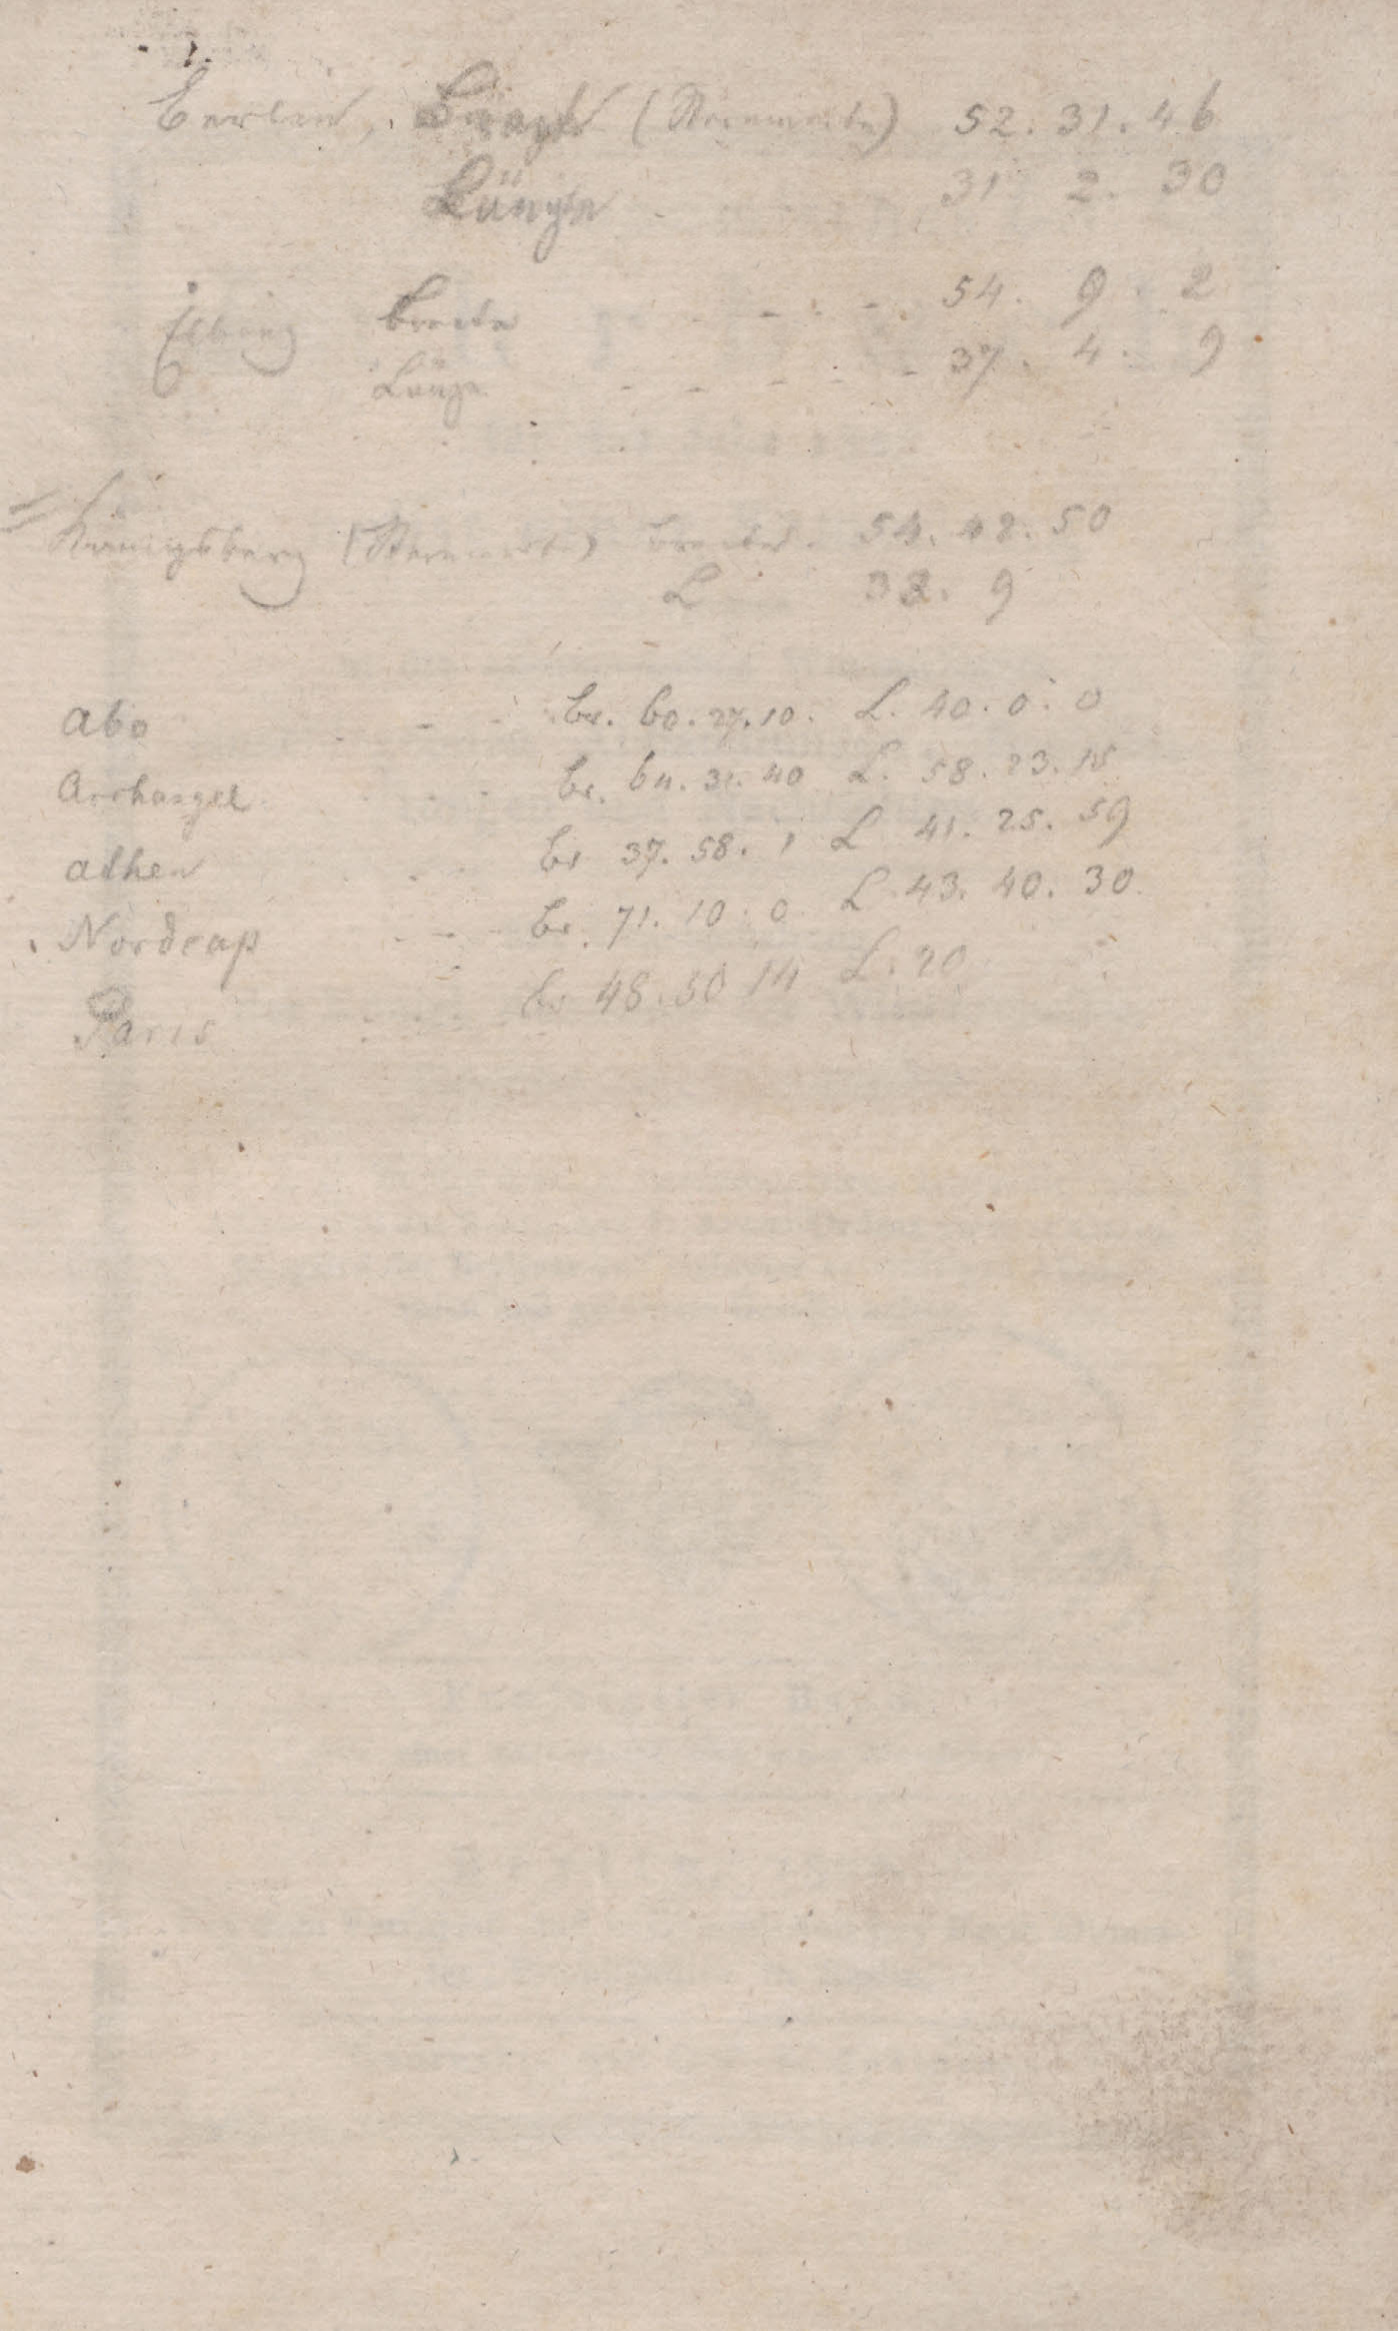 Berlin, Breite (Sternwarte) 52. 31. 46
Länge 31 2. 30
Elbing Breite - - - - 54. 9. 2
Länge - - - - - 37. 4. 9
Königsberg (Sternwarte) Breite. 54. 42. 50
L 38. 9
Abo - - br. 60. 27. 10. L. 40. 0. 0
Archangel - - br. 64. 31. 40 L. 58. 23. 15
Athen - - br 37. 58. 1 L 41. 25. 59
Nordcap - - - br. 71. 10. 0 L. 43. 40. 30.
Paris br 48. 50 14 L. 20